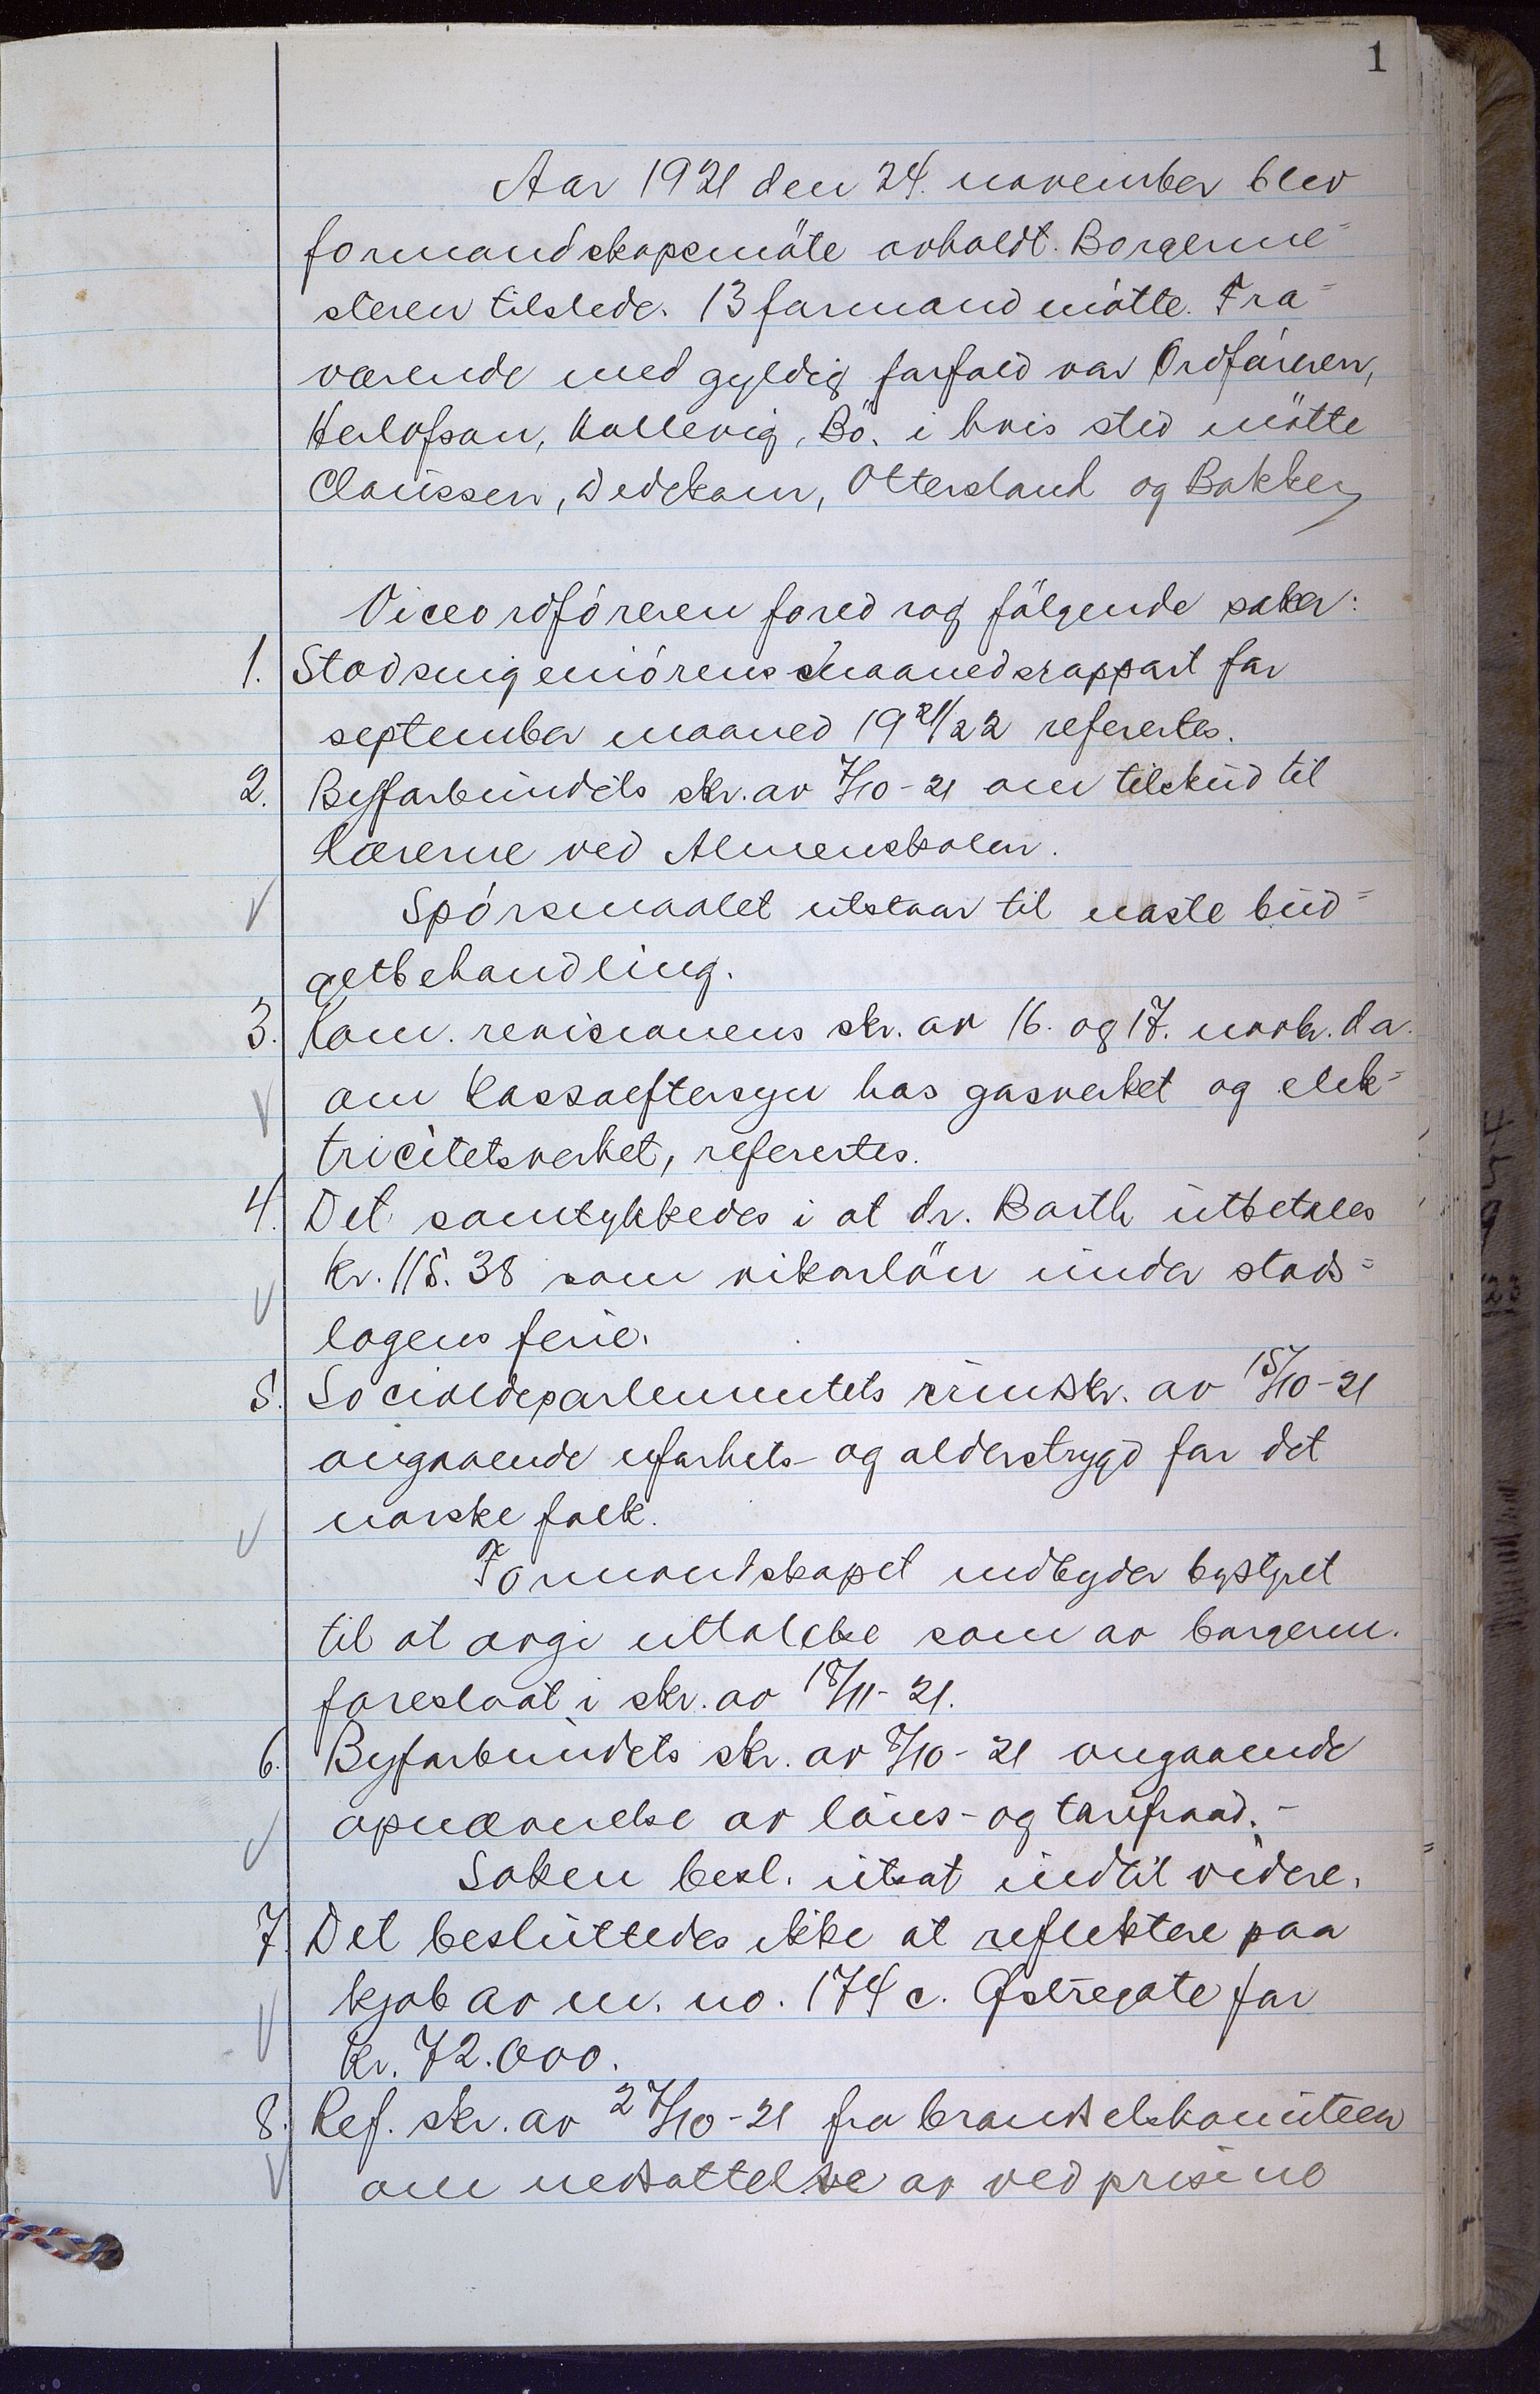 1
Aar 1921 den 24. november blev
formandskapsmöte avholdt. Borgerme=
steren tilstede. 13 formænd mötte. Fra=
værende med gyldig forfald var Ordföreren,
Herlofson, Kallevig, Bö. i hvis sted mötte
Claussen, Dedekam, Ottersland og Bakke,
Viceordföreren foredrog följende saker:
1. Stadsingeniörens maanedsrapport for
september maaned 1921/22 refertes.
2. Byforbundets skr. av 7/10-21 om tilskud til
lærerne ved Almenskolen.
Spörsmaalet utstaar til næste bud=
getbehandling.
3. Kom. revisionens skr. av 16. og 17. novbr. d.a.
om kassaeftersyn hos gasverket og elek=
tricitetsverket, refertes.
4. Det samtykkedes i at dr. Barth utbetales
kr. 115.38 som vikarlön under stads=
lægens ferie.
5. Socialdepartementets rundskr. av 15/10-21
angaaende uförhets- og alderstrygd for det
norske folk.
Formandskapet indbyder bystyret
til at avgi uttalelse som av borgerm.
foreslaat i skr. av 18/11-21.
6. Byforbundets skr. av 8/10-21 angaaende
opnævnelse av löns- og tarifraad.-
Saken besl. utsat indtil videre.
7. Det besluttedes ikke at reflektere paa
kjöb av m. no. 174 c. Östregate for
kr. 72.000.
8. Ref. skr. av 27/10-21 fra brændselskomiteen
om nedsættelse av vedprisene